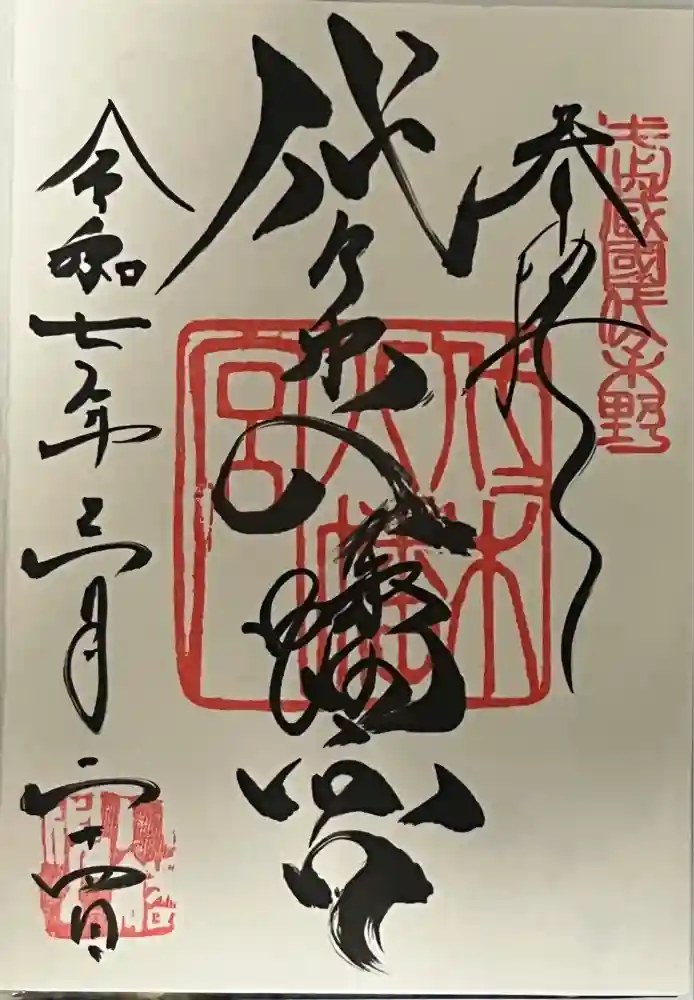 武蔵國代々木野
参拝
代々木八幡宮
代々木八幡宮
令和七年三月二十四日